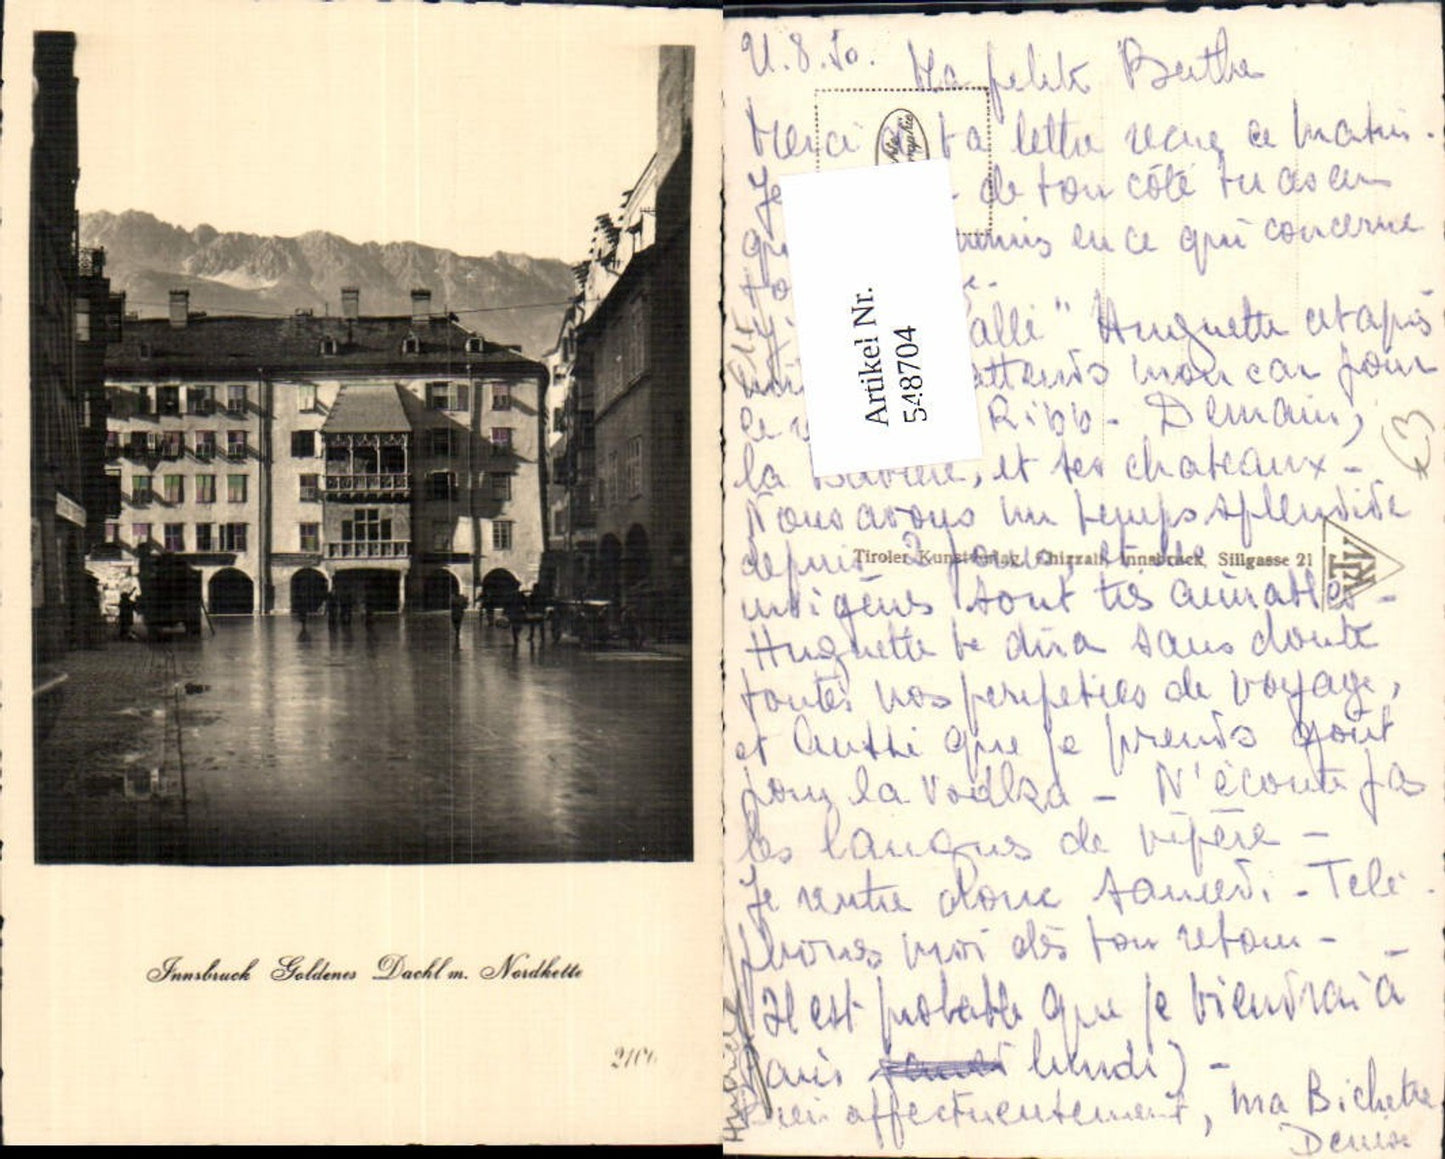 Innsbruck Goldenes Dachl m. Nordkette
2106
Artikel Nr.
548704
Tiroler Kunstverlag Chizzali, Innsbruck, Sillgasse 21
TKV
.8.50.
Ma petite Berthe
Merci de ta lettre reçue ce matin.
Je de ton côté tu as eu
en ce qui concerne
Huguette est après
attends mon car pour
le Demain,
la Bavière, et ses chateaux -
Nous avons un temps splendide
depuis 2 jours,
indigènes sont très aimables -
Huguette te dira sans doute
toutes nos peripeties de voyage,
et aussi que je prends goût
pour la Vodka - N'écoute pas
les langues de vipère -
Je rentre donc samedi - Télé
phones moi dès ton retour -
Il est probable que je viendrai à
Paris lundi) -
Bien affectueusement, ma Bichette
Denise